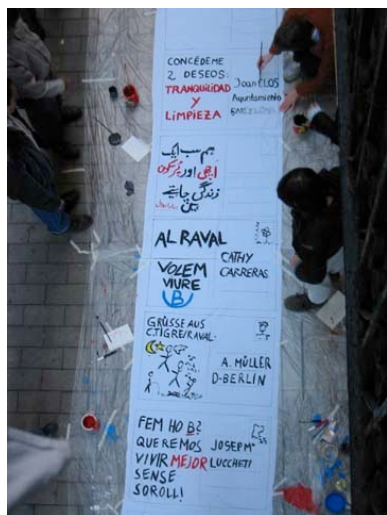 CONCÉDEME
2 DESEOS:
TRANQUILIDAD
Y
LIMPIEZA
Joan CLOS
Ayuntamiento
BARCELONA
ہم سب ایک
اچھی اور پُرسکون
زندگی چاہتے
ہیں
AL RAVAL
VOLEM
VIURE
B
CATHY
CARRERAS
GRÜSSE AUS
C.TIGRE/RAVAL.
A. MÜLLER
D-BERLIN
FEM HO B?
QUEREMOS
VIVIR MEJOR
SENSE
SOROLL!
JOSEP Mª
LUCCHETI